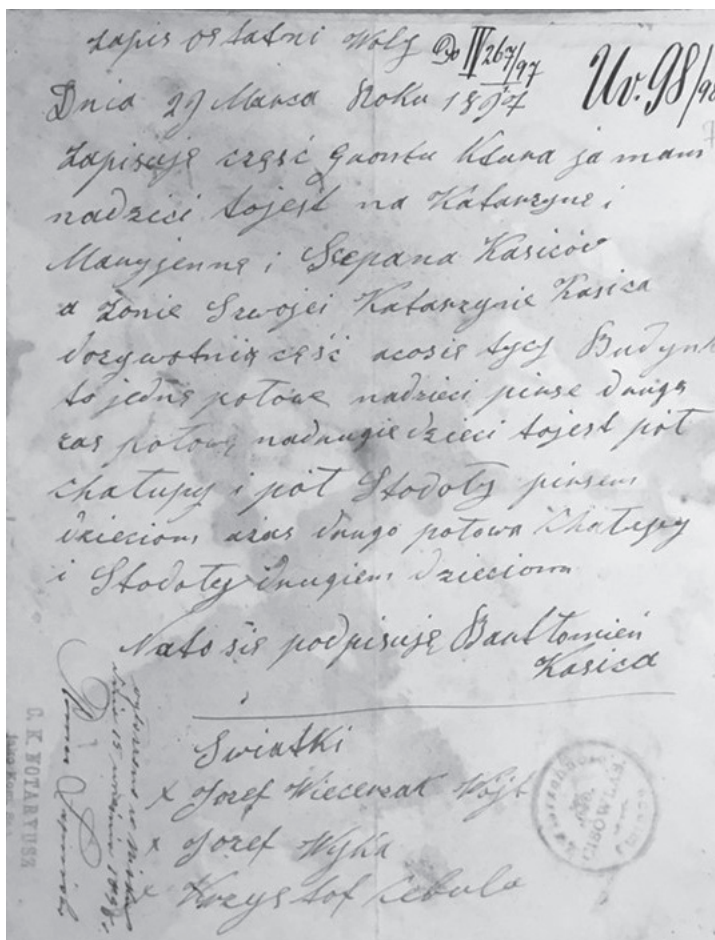 zapis ostatni Woly
Do IV 267/97
Uv. 98/98
Dnia 29 Marca Roku 1897
Zapisuję część Grontu Ktura ja mam
nadzieci tojest na Katarzyne i
Maryjenne i Scepana Kasiców
a Zonie Swojei Katarzynie Kasica
dozywotnią część acosię tycy Budynk
to jedne połowe nadzieci pirse druga
zas połowę nadrugie dzieci tojest pół
chałupy i pół Stodoły pirsem
dzieciom azas drugo połowa Chałupy
i Stodoły drugiem dzieciom
Nato się podpisuję Bartłomień
Kasica
Swiatki
x Jozef Wiecerzak Wojt
x Jozef Wyka
x Krzysztof Cebula
CISOWLAS
ogłoszono w
dnia 15 1898
C. K. NOTARYUSZ